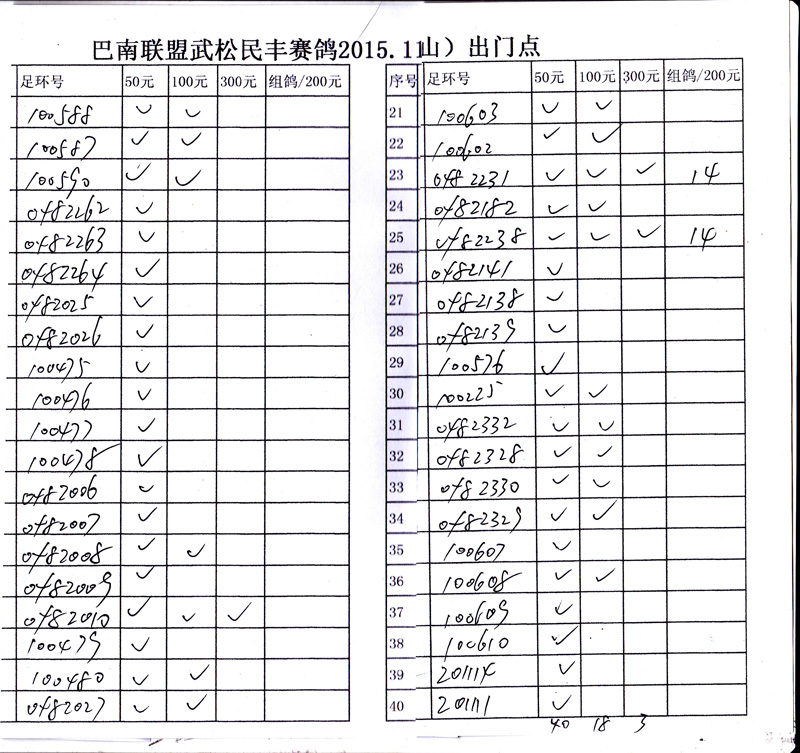 巴南联盟武松民丰赛鸽2015.11山）出门点
足环号 50元 100元 300元 组鸽/200元
100588 ✓ ✓
100587 ✓ ✓
100590 ✓ ✓
0482262 ✓
0482263 ✓
0482264 ✓
0482025 ✓
0482026 ✓
100475 ✓
100476 ✓
100477 ✓
100478 ✓
0482006 ✓
0482007 ✓
0482008 ✓ ✓
0482009 ✓
0482010 ✓ ✓ ✓
100479 ✓
100480 ✓ ✓
0482027 ✓ ✓
序号 足环号 50元 100元 300元 组鸽/200元
21 100603 ✓ ✓
22 100602 ✓ ✓
23 0482231 ✓ ✓ ✓ 14
24 0482182 ✓ ✓
25 0482238 ✓ ✓ ✓ 14
26 0482141 ✓
27 0482138 ✓
28 0482139 ✓
29 100576 ✓
30 100225 ✓ ✓
31 0482332 ✓ ✓
32 0482328 ✓ ✓
33 0482330 ✓ ✓
34 0482329 ✓ ✓
35 100607 ✓
36 100608 ✓ ✓
37 100609 ✓
38 100610 ✓
39 201114 ✓
40 201111 ✓
40 18 3